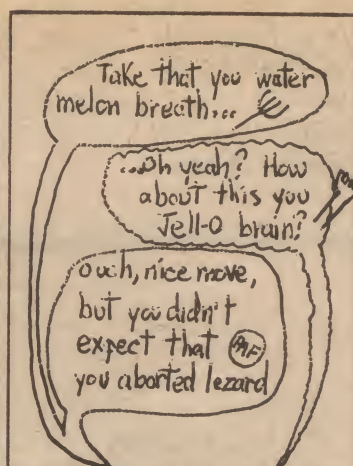 Take that you water
melon breath...
...oh yeah? How
about this you
Jell-O brain?
ouch, nice move,
but you didn't
expect that PAF
you aborted lezard